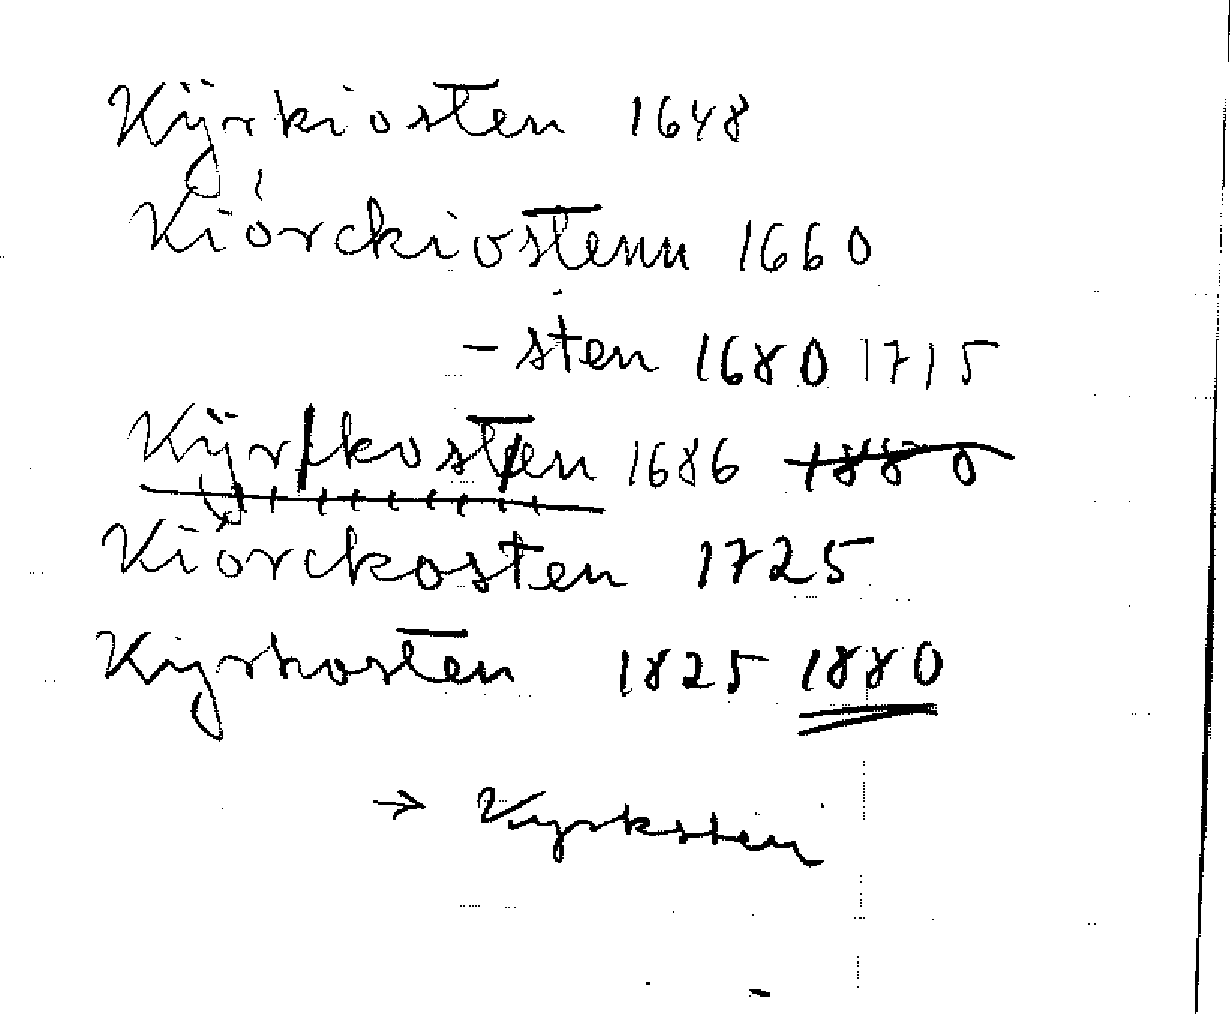 Kÿrkiosten 1648
Kiórckiostenn 1660
-sten 1680 1715
Kÿrkosten 1686 1880
Kiörckosten 1725
Kyrkosten 1825 1880
→ Kyrksten